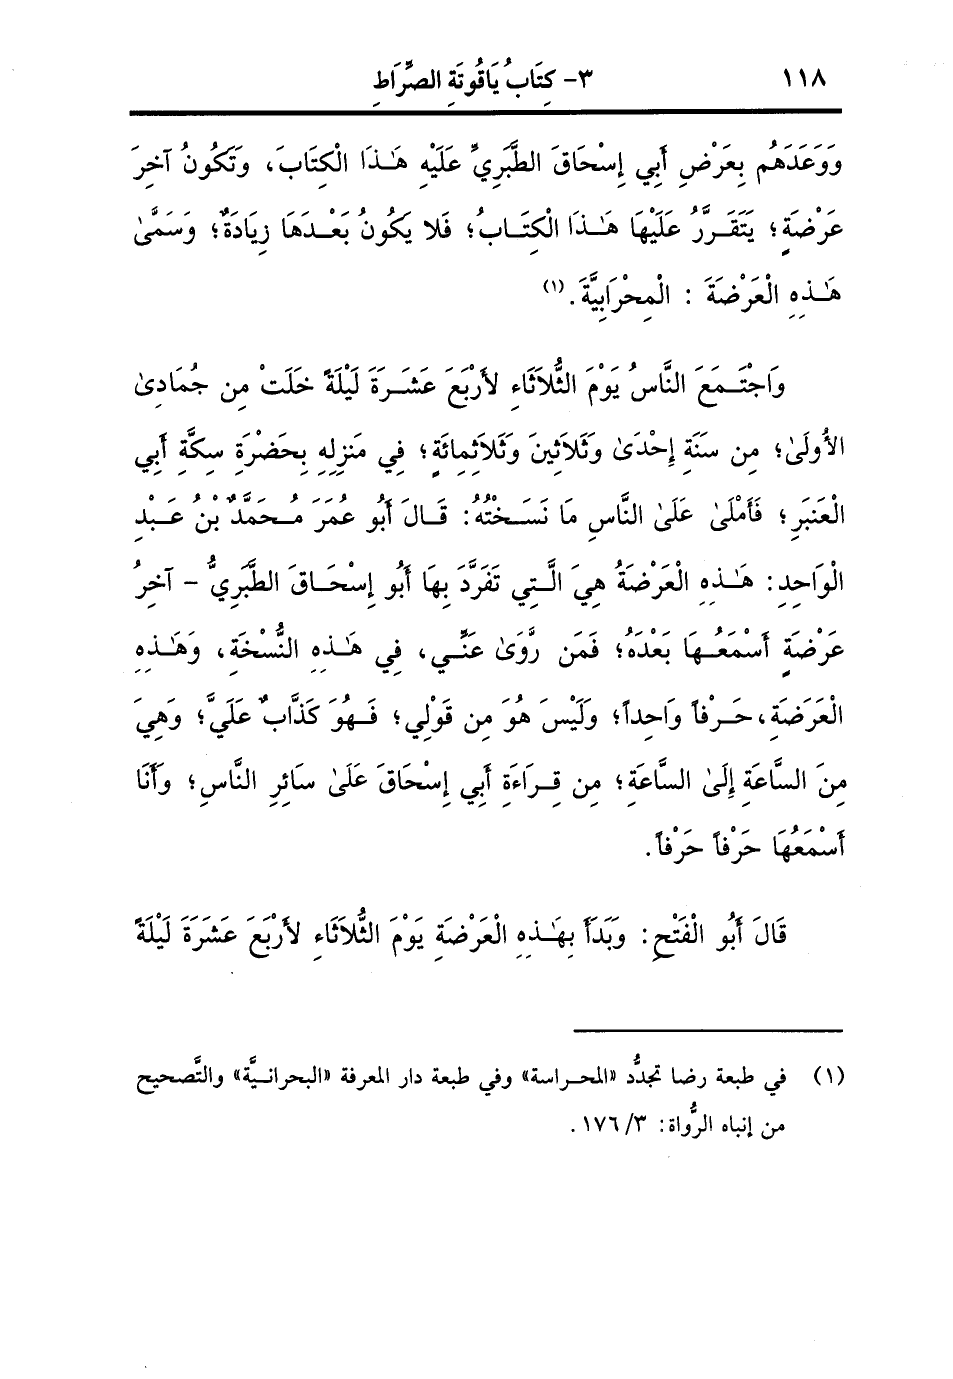 ١١٨ ٣- كِتَابُ يَاقُوتَةِ الصِّرَاطِ
وَوَعَدَهُم بِعَرْضِ أَبِي إِسْحَاقَ الطَّبَرِيِّ عَلَيْهِ هَـٰذَا الْكِتَابَ، وَتَكُونُ آخِرَ
عَرْضَةٍ؛ يَتَقَرَّرُ عَلَيْهَا هَـٰذَا الْكِتَـابُ؛ فَلا يَكُونُ بَعْـدَهَا زِيَادَةٌ؛ وَسَمَّىٰ
هَـٰذِهِ الْعَرْضَةَ : الْمِحْرَابِيَّةَ.(١)
وَاجْتَـمَعَ النَّاسُ يَوْمَ الثُّلاَثَاءِ لأَرْبَعَ عَشَـرَةَ لَيْلَةً خَلَتْ مِن جُمَادِىٰ
الأُولَىٰ؛ مِن سَنَةِ إِحْدَىٰ وَثَلاَثِينَ وَثَلاَثِمِائَةٍ؛ فِي مَنزِلِهِ بِحَضْرَةِ سِكَّةِ أَبِي
الْعَنبَرِ؛ فَأَمْلَىٰ عَلَىٰ النَّاسِ مَا نَسَـخْتُهُ: قَـالَ أَبُو عُمَرَ مُـحَمَّدُ بْنُ عَبْـدِ
الْوَاحِدِ: هَـٰذِهِ الْعَرْضَةُ هِيَ الَّـتِي تَفَرَّدَ بِهَا أَبُو إِسْحَـاقَ الطَّبَرِيُّ - آخِرُ
عَرْضَةٍ أَسْمَعُـهَا بَعْدَهُ؛ فَمَن رَّوَىٰ عَنِّـي، فِي هَـٰذِهِ النُّسْخَةِ، وَهَـٰذِهِ
الْعَرَضَةِ، حَـرْفاً وَاحِداً؛ وَلَيْسَ هُوَ مِن قَوْلِي؛ فَـهُوَ كَذَّابٌ عَلَيَّ؛ وَهِيَ
مِنَ السَّاعَةِ إِلَىٰ السَّاعَةِ؛ مِن قِـرَاءَةِ أَبِي إِسْحَاقَ عَلَىٰ سَائِرِ النَّاسِ؛ وَأَنَا
أَسْمَعُهَا حَرْفاً حَرْفاً.
قَالَ أَبُو الْفَتْحِ: وَبَدَأَ بِهَـٰذِهِ الْعَرْضَةِ يَوْمَ الثُّلاَثَاءِ لأَرْبَعَ عَشَرَةَ لَيْلَةً
(١) في طبعة رضا تجدُّد «المحـراسة» وفي طبعة دار المعرفة «البحرانـيَّة» والتَّصحيح
من إنباه الرُّواة: ١٧٦/٣.